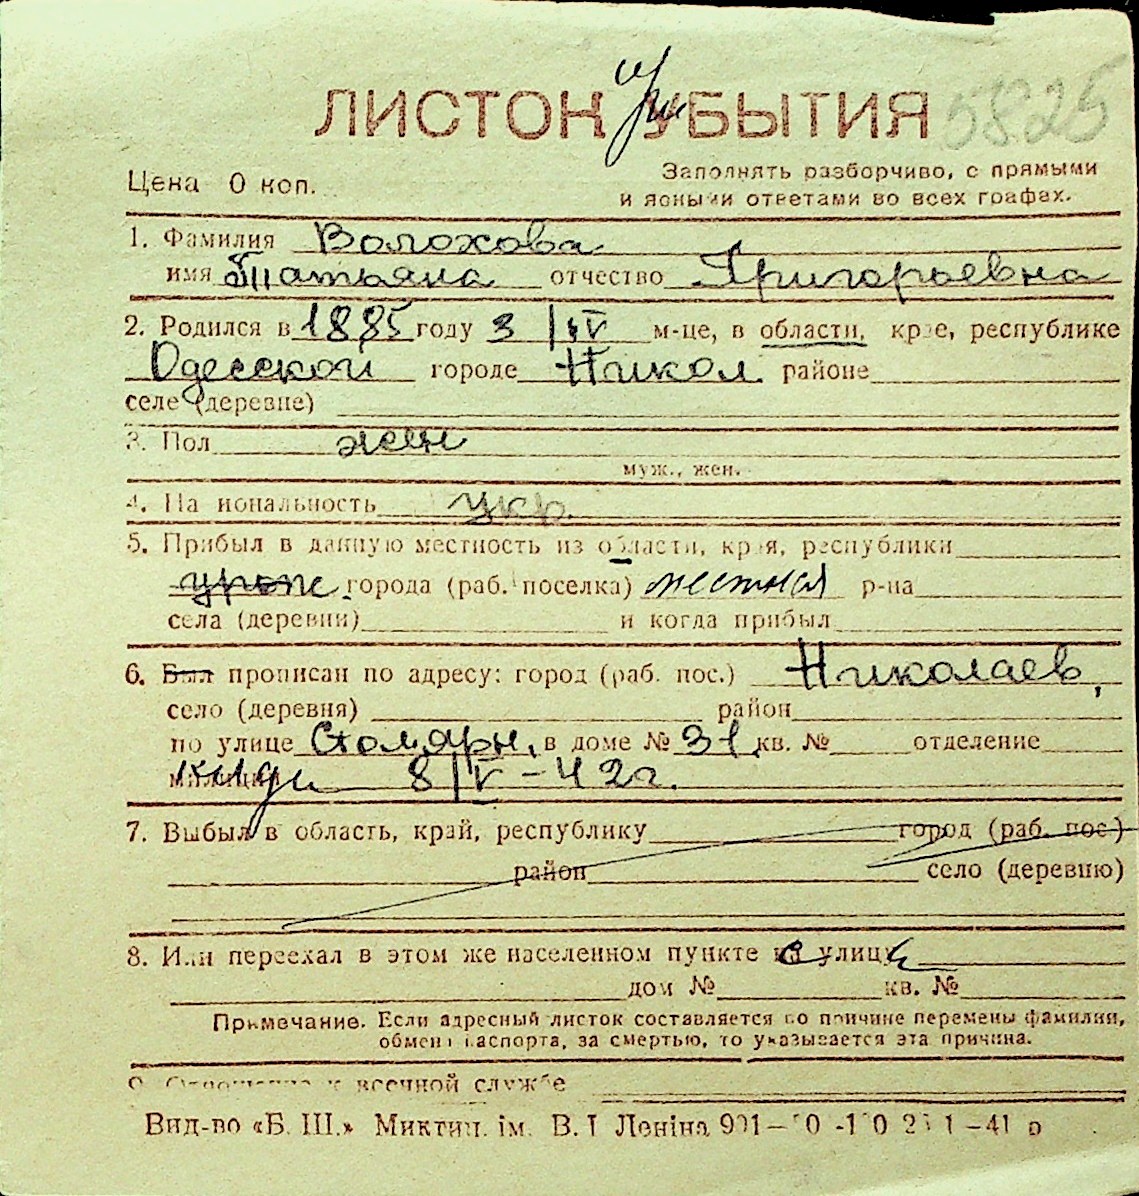 ЛИСТОК при УБЫТИЯ 5825
Цена 0 коп.
Заполнять разборчиво, с прямыми
и ясными ответами во всех графах.
1. Фамилия Волохова
имя Татьяна отчество Григорьевна
2. Родился в 1885 году 3/IV м-це, в области, крае, республике
Одесской городе Никол. районе
селе (деревне)
3. Пол жен
муж., жен.
4. Национальность укр.
5. Прибыл в данную местность из области, края, республики
города (раб. поселка) местная р-на
села (деревни) и когда прибыл
6. Был прописан по адресу: город (раб. пос.) Николаев,
село (деревня) район
по улице Столярн. в доме № 31 кв. № отделение
милиции 8/V-42г.
7. Выбыл в область, край, республику город (раб. пос)
район село (деревню)
8. Или переехал в этом же населенном пункте с улицы
дом № кв. №
Примечание. Если адресный листок составляется по причине перемены фамилии,
обмена паспорта, за смертью, то указывается эта причина.
9. Отношение к военной службе
Вид-во «Б. Ш.» Миктип. ім. В. І Леніна